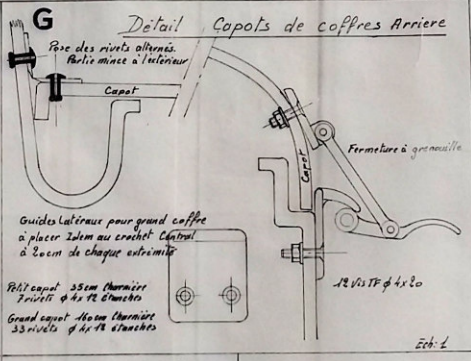 G
Détail Capots de coffres Arriere
Pose des rivets alternés.
Partie mince à l'extérieur
Capot
Capot
Fermeture à grenouille
Guides Latéraux pour grand coffre
à placer Idem au crochet Central
à 20cm de chaque extrémité
Petit capot 35cm Charnière
7 rivets ϕ 4x12 étanches
Grand capot 160cm Charnière
33 rivets ϕ 4x12 étanches
12 vis TF ϕ 4x20
Ech: 1